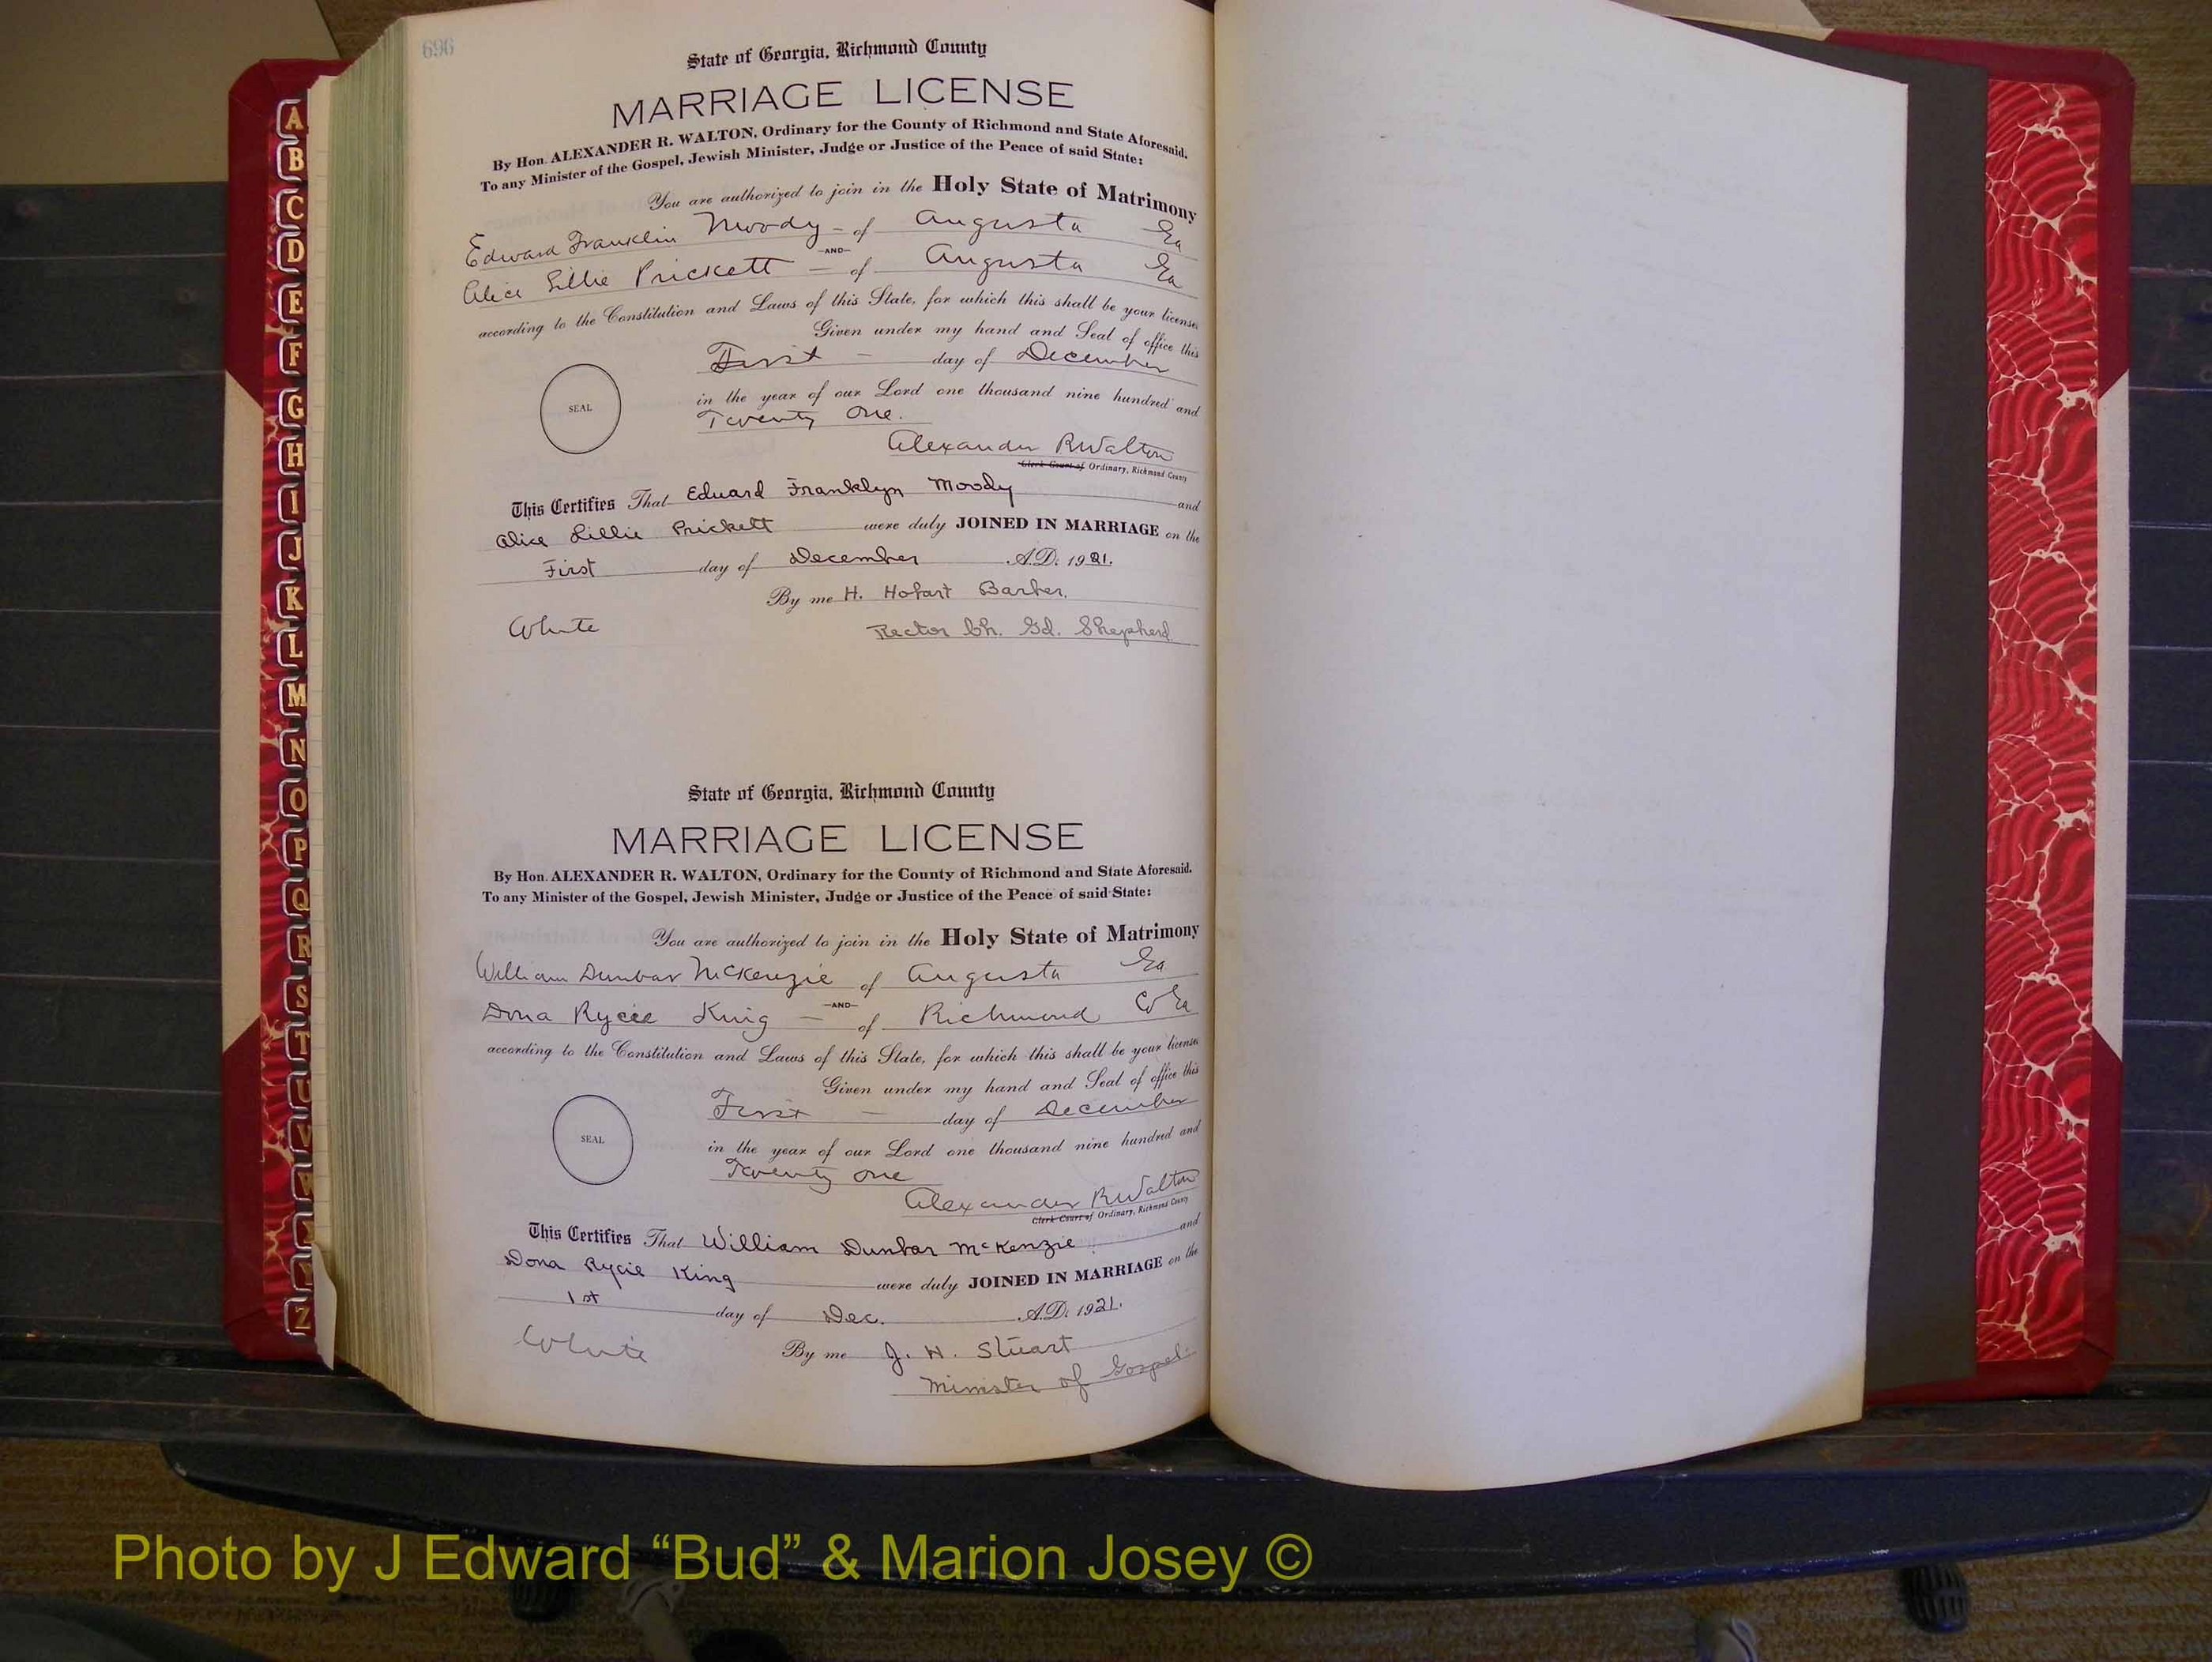 696
State of Georgia, Richmond County
MARRIAGE LICENSE
By Hon. ALEXANDER R. WALTON, Ordinary for the County of Richmond and State Aforesaid.
To any Minister of the Gospel, Jewish Minister, Judge or Justice of the Peace of said State:
You are authorized to join in the Holy State of Matrimony
Edward Franklin Moody - of Augusta Ga
—AND—
Alice Lillie Prickett — of Augusta Ga
according to the Constitution and Laws of this State, for which this shall be your license
Given under my hand and Seal of office this
First — day of December
in the year of our Lord one thousand nine hundred and
SEAL
Twenty One.
Alexander R Walton
Clerk Court of Ordinary, Richmond County
This Certifies That Edward Franklyn Moody and
Alice Lillie Prickett were duly JOINED IN MARRIAGE on the
First day of December A.D. 1921.
By me H. Hobart Barber,
White Rector Ch. Gd. Shepherd
State of Georgia, Richmond County
MARRIAGE LICENSE
By Hon. ALEXANDER R. WALTON, Ordinary for the County of Richmond and State Aforesaid.
To any Minister of the Gospel, Jewish Minister, Judge or Justice of the Peace of said State:
You are authorized to join in the Holy State of Matrimony
William Dunbar McKenzie of Augusta Ga
—AND—
Dona Rycie King — of Richmond Co Ga
according to the Constitution and Laws of this State, for which this shall be your license
Given under my hand and Seal of office this
First — day of December
SEAL
in the year of our Lord one thousand nine hundred and
Twenty one
Alexander R Walton
Clerk Court of Ordinary, Richmond County
This Certifies That William Dunbar McKenzie and
Dona Rycie King were duly JOINED IN MARRIAGE on the
1st day of Dec. A.D. 1921.
White By me J. H. Stuart
Minister of Gospel.
A
B
C
D
E
F
G
H
I
J
K
L
M
N
O
P
Q
R
S
T
U
V
W
Z
Photo by J Edward “Bud” & Marion Josey ©